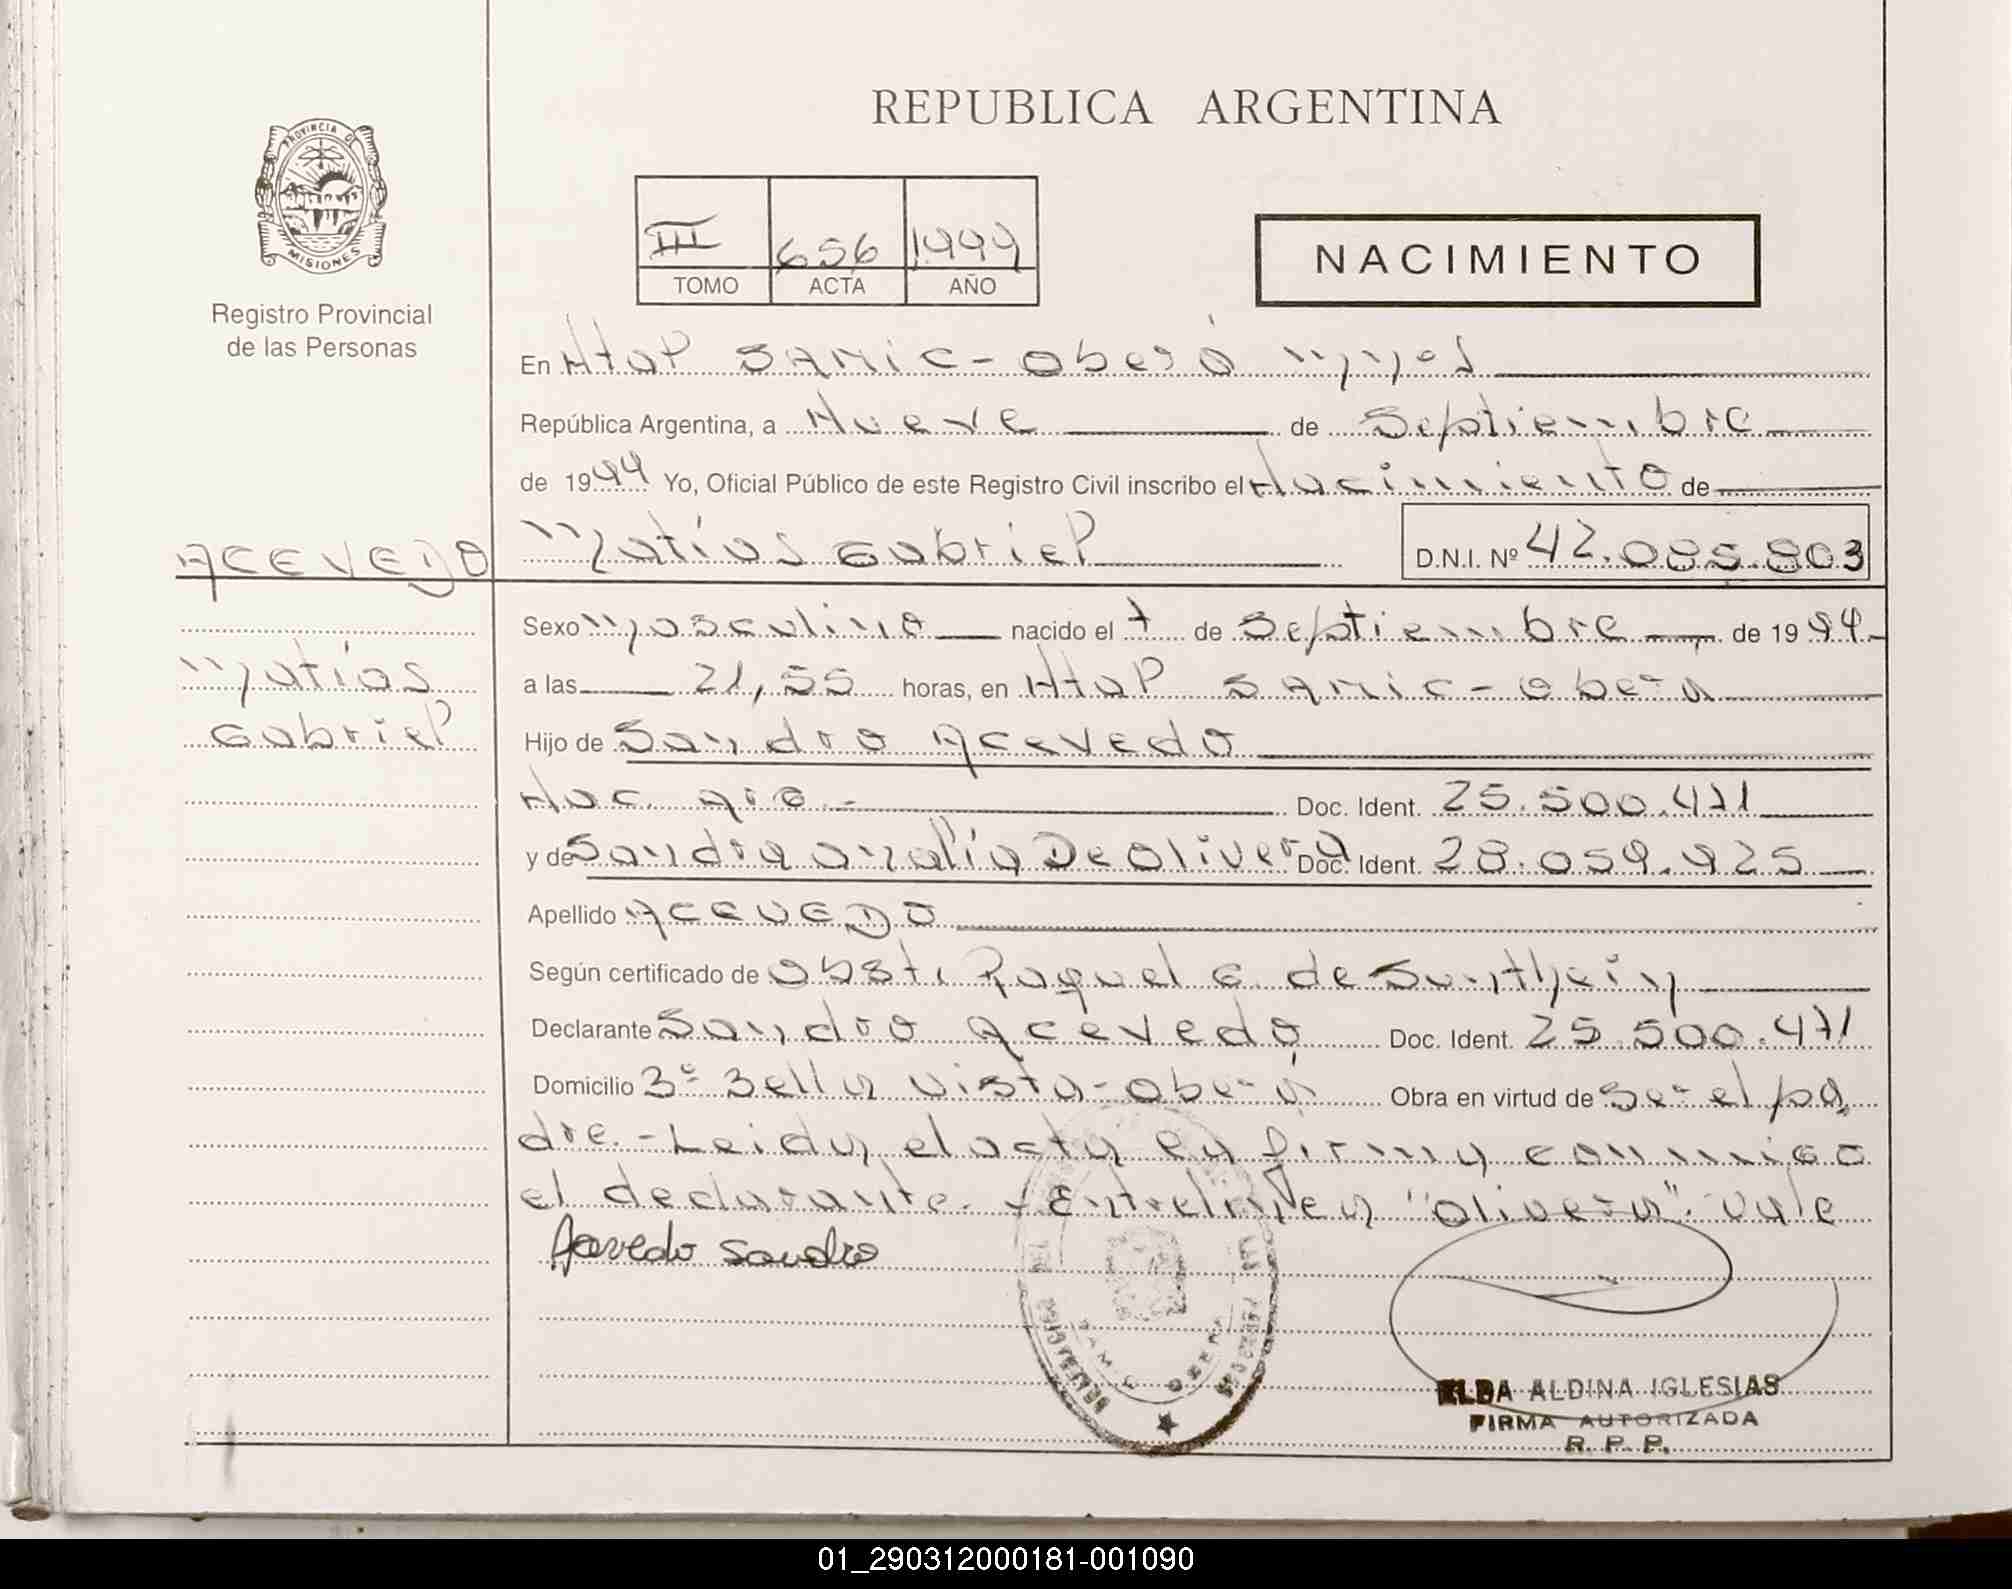 REPUBLICA ARGENTINA
PROVINCIA DE
MISIONES
Registro Provincial
de las Personas
III 656 1.999
TOMO ACTA AÑO
NACIMIENTO
En Htal SAMIC - Oberá Mnes
República Argentina, a Nueve de Septiembre
de 1999 Yo, Oficial Público de este Registro Civil inscribo el Nacimiento de
ACEVEDO
Matías Gabriel D.N.I. Nº 42.085.803
Matías
Gabriel
Sexo Masculino nacido el 7 de Septiembre de 1999
a las 21,55 horas, en Htal SAMIC - Oberá
Hijo de Sandro Acevedo
Nac. Arg. - Doc. Ident. 25.500.471
y de Sandra Analía De Olivera Doc. Ident. 28.059.925
Apellido ACEVEDO
Según certificado de Obst. Raquel G. de
Declarante Sandro Acevedo Doc. Ident. 25.500.471
Domicilio Bº Bella Vista - Oberá Obra en virtud de ser el pa
dre. - Leida el acta la firma conmigo
el declarante. - Entrelinea "Olivera". Vale
Acevedo Sandro
OBERA
ELBA ALDINA IGLESIAS
FIRMA AUTORIZADA
R. P. P.
01_290312000181-001090